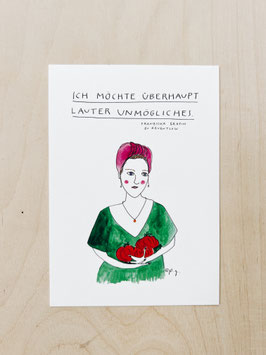 ICH MÖCHTE ÜBERHAUPT
LAUTER UNMÖGLICHES.
FRANZISKA GRÄFIN
ZU REVENTLOW